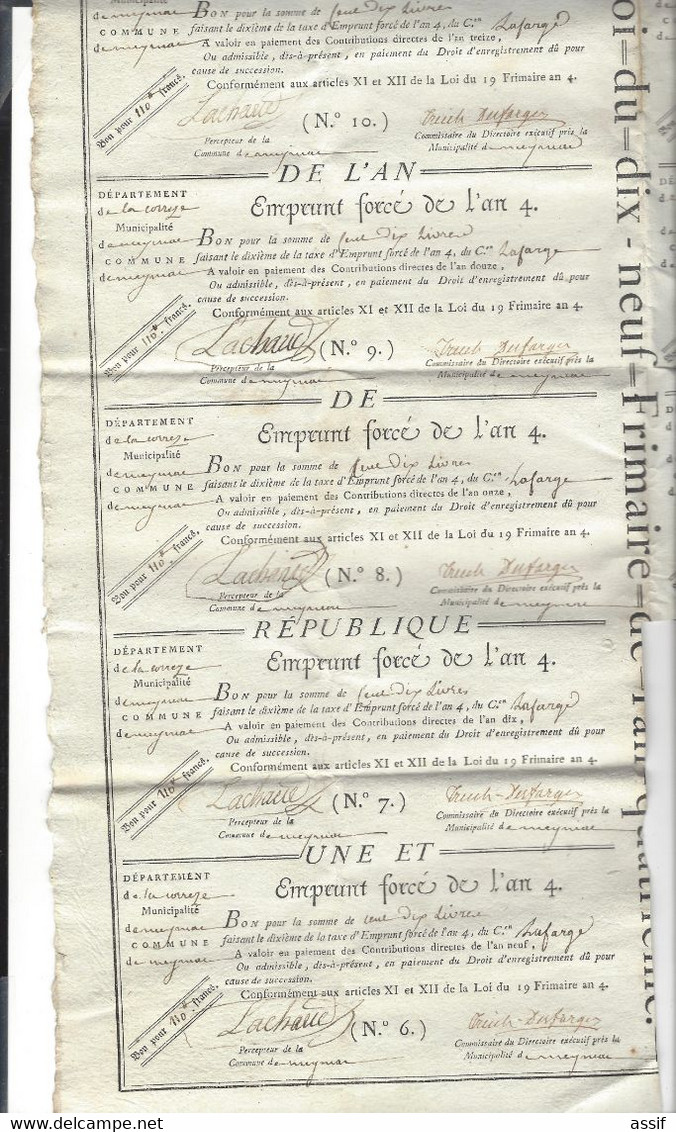 BON pour la somme de cent dix Livres
faisant le dixième de la taxe d'Emprunt forcé de l'an 4, du C.en Lafarge
COMMUNE
de meymac
A valoir en paiement des Contributions directes de l'an treize,
Ou admissible, dès-à-présent, en paiement du Droit d'enregistrement dû pour
cause de succession.
Conformément aux articles XI et XII de la Loi du 19 Frimaire an 4.
Bon pour 110 francs.
Lachaud
(N.º 10.)
Treich Desfarges
Percepteur de la
Commune de meymac
Commissaire du Directoire exécutif près la
Municipalité de meymac
DE L'AN
DÉPARTEMENT
de la correze
Municipalité
de meymac
COMMUNE
de meymac
Emprunt forcé de l'an 4.
BON pour la somme de cent dix Livres
faisant le dixième de la taxe d'Emprunt forcé de l'an 4, du C.en Lafarge
A valoir en paiement des Contributions directes de l'an douze,
Ou admissible, dès-à-présent, en paiement du Droit d'enregistrement dû pour
cause de succession.
Conformément aux articles XI et XII de la Loi du 19 Frimaire an 4.
Bon pour 110 francs.
Lachaud
(N.º 9.)
Treich Desfarges
Percepteur de la
Commune de meymac
Commissaire du Directoire exécutif près la
Municipalité de meymac
DE
DÉPARTEMENT
de la correze
Municipalité
de meymac
COMMUNE
de meymac
Emprunt forcé de l'an 4.
BON pour la somme de cent dix Livres
faisant le dixième de la taxe d'Emprunt forcé de l'an 4, du C.en Lafarge
A valoir en paiement des Contributions directes de l'an onze,
Ou admissible, dès-à-présent, en paiement du Droit d'enregistrement dû pour
cause de succession.
Conformément aux articles XI et XII de la Loi du 19 Frimaire an 4.
Bon pour 110 francs.
Lachaud
(N.º 8.)
Treich Desfarges
Percepteur de la
Commune de meymac
Commissaire du Directoire exécutif près la
Municipalité de meymac
RÉPUBLIQUE
DÉPARTEMENT
de la correze
Municipalité
de meymac
COMMUNE
de meymac
Emprunt forcé de l'an 4.
BON pour la somme de cent dix Livres
faisant le dixième de la taxe d'Emprunt forcé de l'an 4, du C.en Lafarge
A valoir en paiement des Contributions directes de l'an dix,
Ou admissible, dès-à-présent, en paiement du Droit d'enregistrement dû pour
cause de succession.
Conformément aux articles XI et XII de la Loi du 19 Frimaire an 4.
Bon pour 110 francs.
Lachaud
(N.º 7.)
Treich-Desfarges
Percepteur de la
Commune de meymac
Commissaire du Directoire exécutif près la
Municipalité de meymac
UNE ET
DÉPARTEMENT
de la correze
Municipalité
de meymac
COMMUNE
de meymac
Emprunt forcé de l'an 4.
BON pour la somme de cent dix Livres
faisant le dixième de la taxe d'Emprunt forcé de l'an 4, du C.en Lafarge
A valoir en paiement des Contributions directes de l'an neuf,
Ou admissible, dès-à-présent, en paiement du Droit d'enregistrement dû pour
cause de succession.
Conformément aux articles XI et XII de la Loi du 19 Frimaire an 4.
Bon pour 110 francs.
Lachaud
(N.º 6.)
Treich-Desfarges
Percepteur de la
Commune de meymac
Commissaire du Directoire exécutif près la
Municipalité de meymac
oi=du=dix-neuf=Frimaire=de=l'an=quatrième.
assif